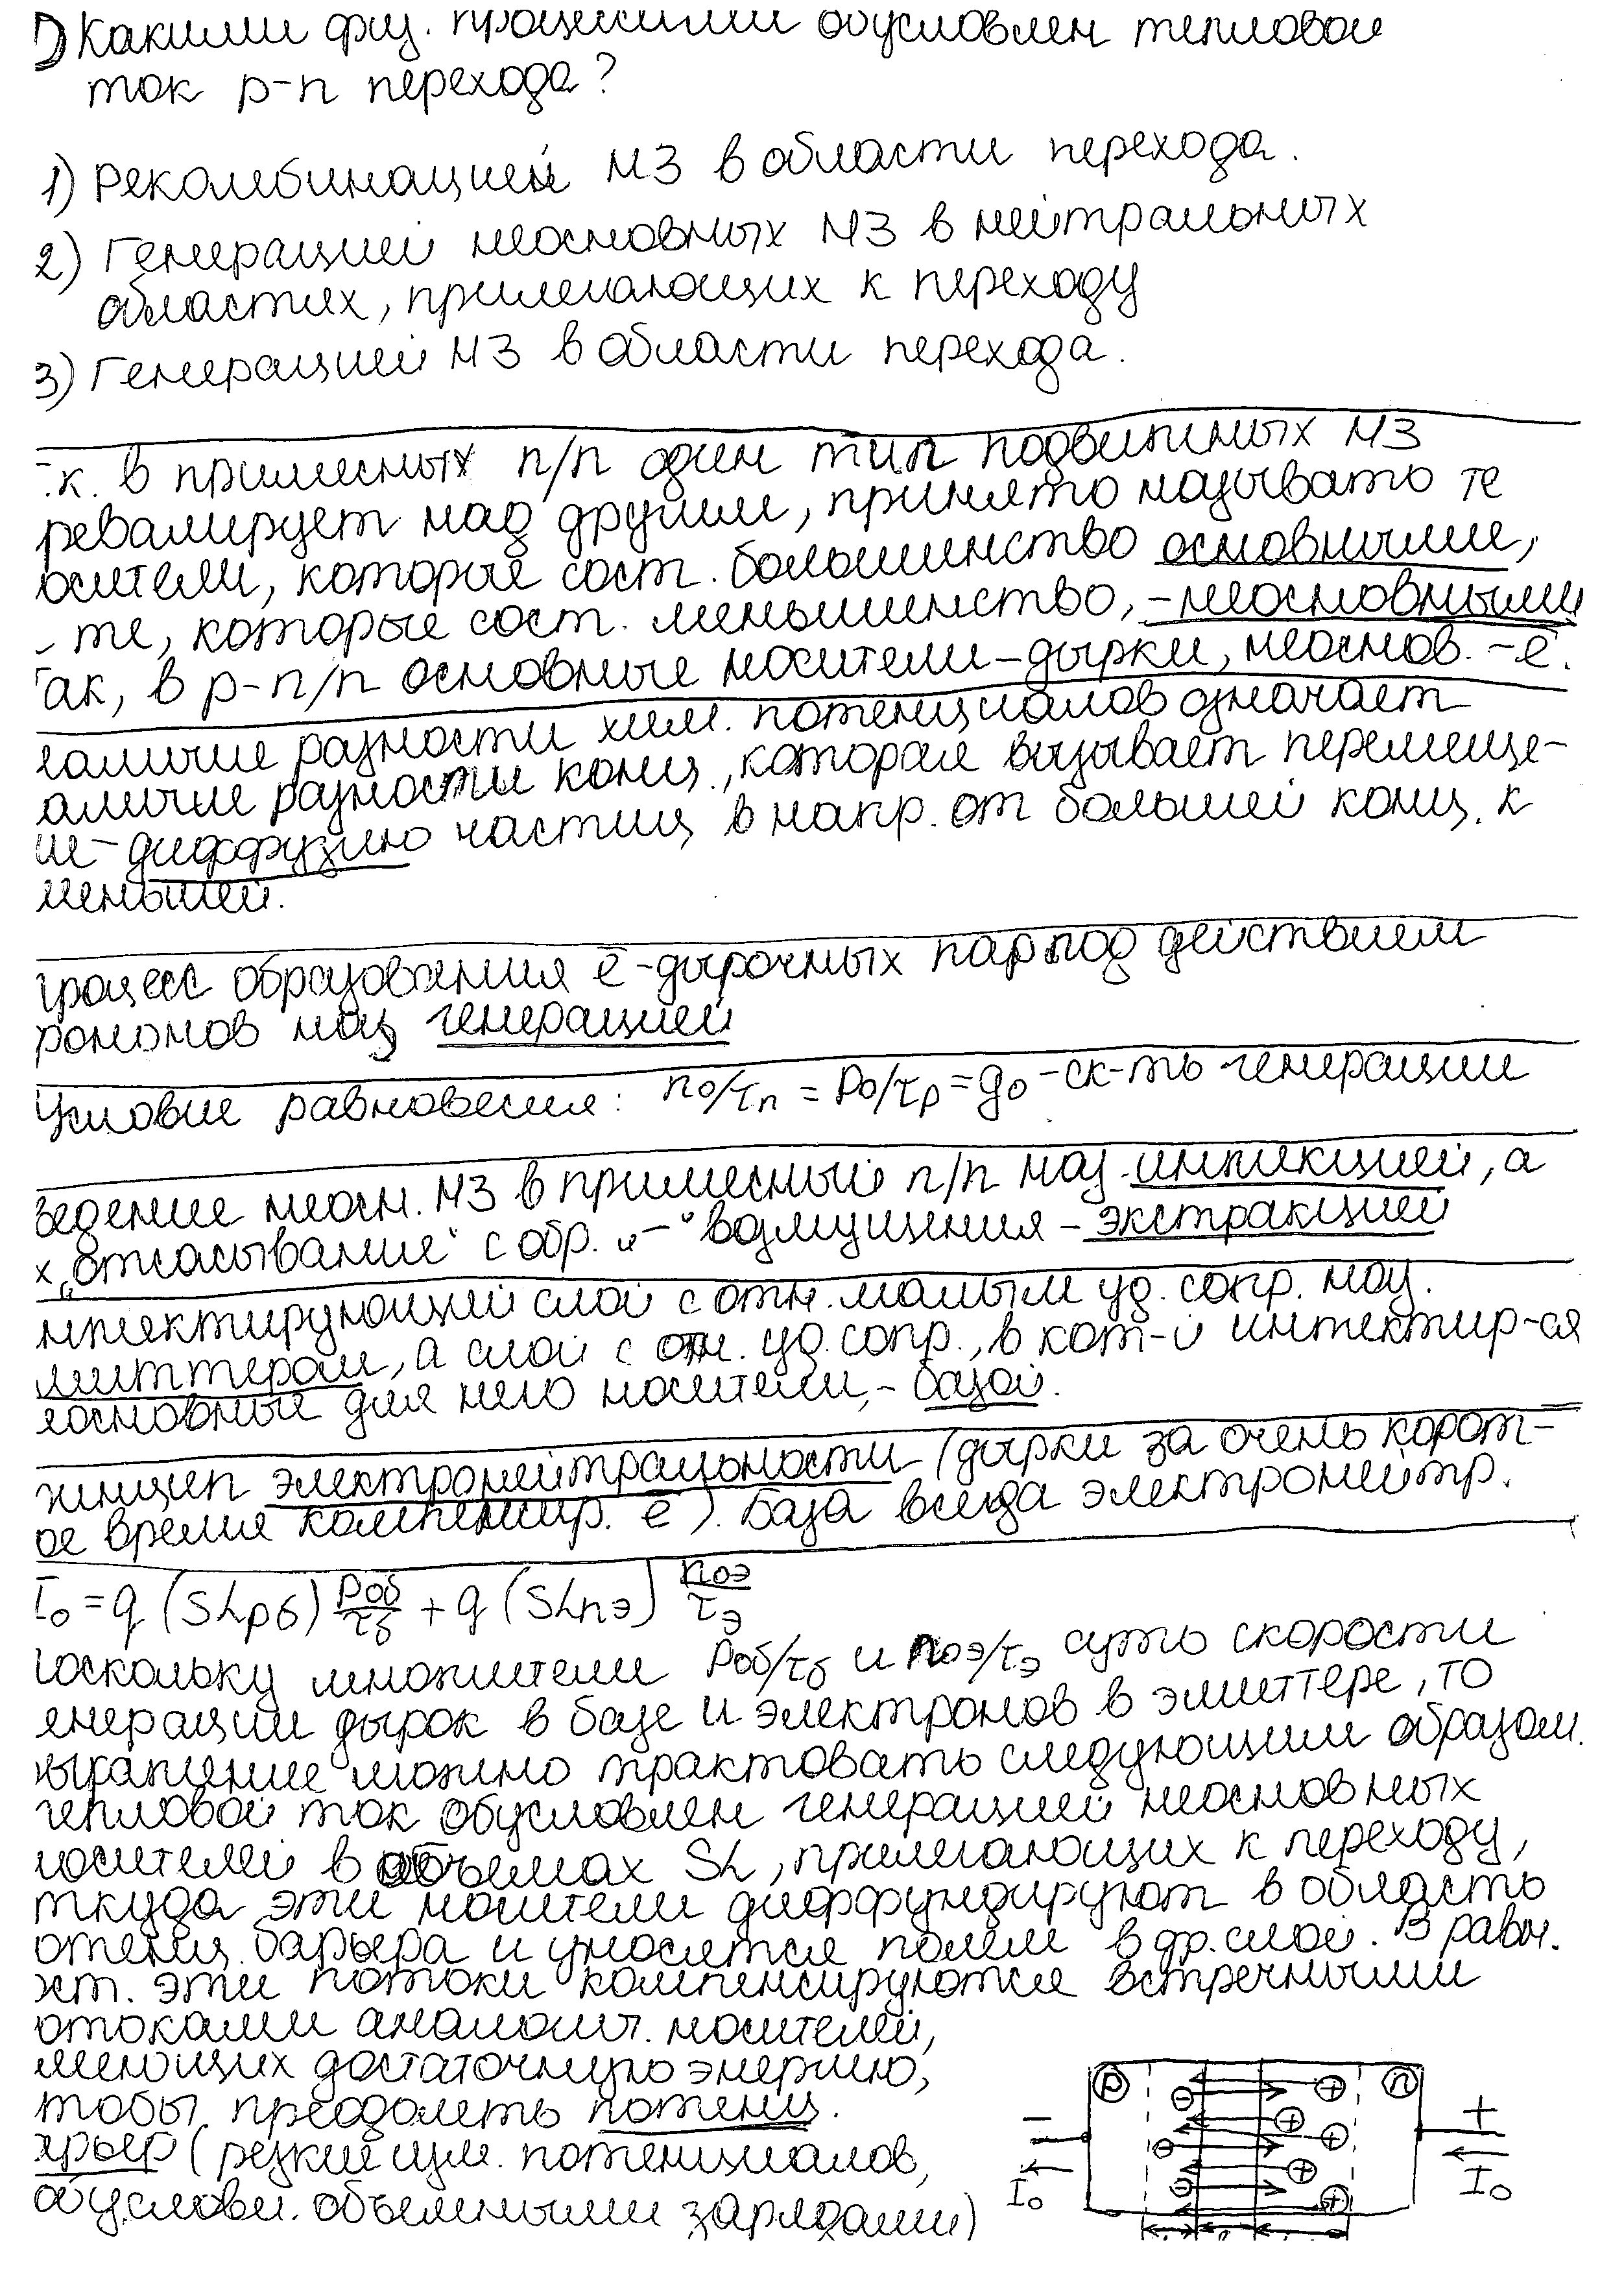 1) Какими физ. процессами обусловлен тепловой
ток p-n перехода?
1) Рекомбинацией НЗ в области перехода.
2) Генерацией неосновных НЗ в нейтральных
областях, прилегающих к переходу
3) Генерацией НЗ в области перехода.
.к. в примесных п/п один тип подвижных НЗ
ревалирует над другим, принято называть те
осители, которые сост. большинство основными,
те, которые сост. меньшинство, – неосновными
ак, в p-п/п основные носители – дырки, неоснов. – e̅.
аличие разности хим. потенциалов означает
аличие разности конц., которая вызывает перемеще-
ие – диффузию частиц в напр. от большей конц. к
меньшей.
процесс образования e̅-дырочных пар под действием
фононов наз генерацией
Условие равновесия: n₀/τₙ = p₀/τₚ = g₀ – ск-ть генерации
ведение неосн. НЗ в примесный п/п наз. инжекцией, а
х „отсасывание“ с обр. –"– возмущения – экстракцией
нжектирующий слой с отн. малым уд. сопр. наз.
миттером, а слой с отн. уд. сопр., в кот-й инжектир-ся
еосновные для него носители, – базой.
ринцип электронейтральности (дырки за очень корот-
ое время компенсир. e̅). База всегда электронейтр.
I₀ = q (SLpб) p₀б/τб + q (SLnэ) n₀э/τэ
Поскольку множители p₀б/τб и n₀э/τэ суть скорости
енерации дырок в базе и электронов в эмиттере, то
выражение можно трактовать следующим образом.
тепловой ток обусловлен генерацией неосновных
носителей в объемах SL, прилегающих к переходу,
ткуда эти носители диффундируют в область
отенц. барьера и уносятся полем в др. слой. В равн.
сост. эти потоки компенсируются встречными
отоками аналогич. носителей,
меющих достаточную энергию,
чтобы преодолеть потенц.
арьер (резкий изм. потенциалов,
обусловл. объемными зарядами)
p n
– +
I₀ I₀